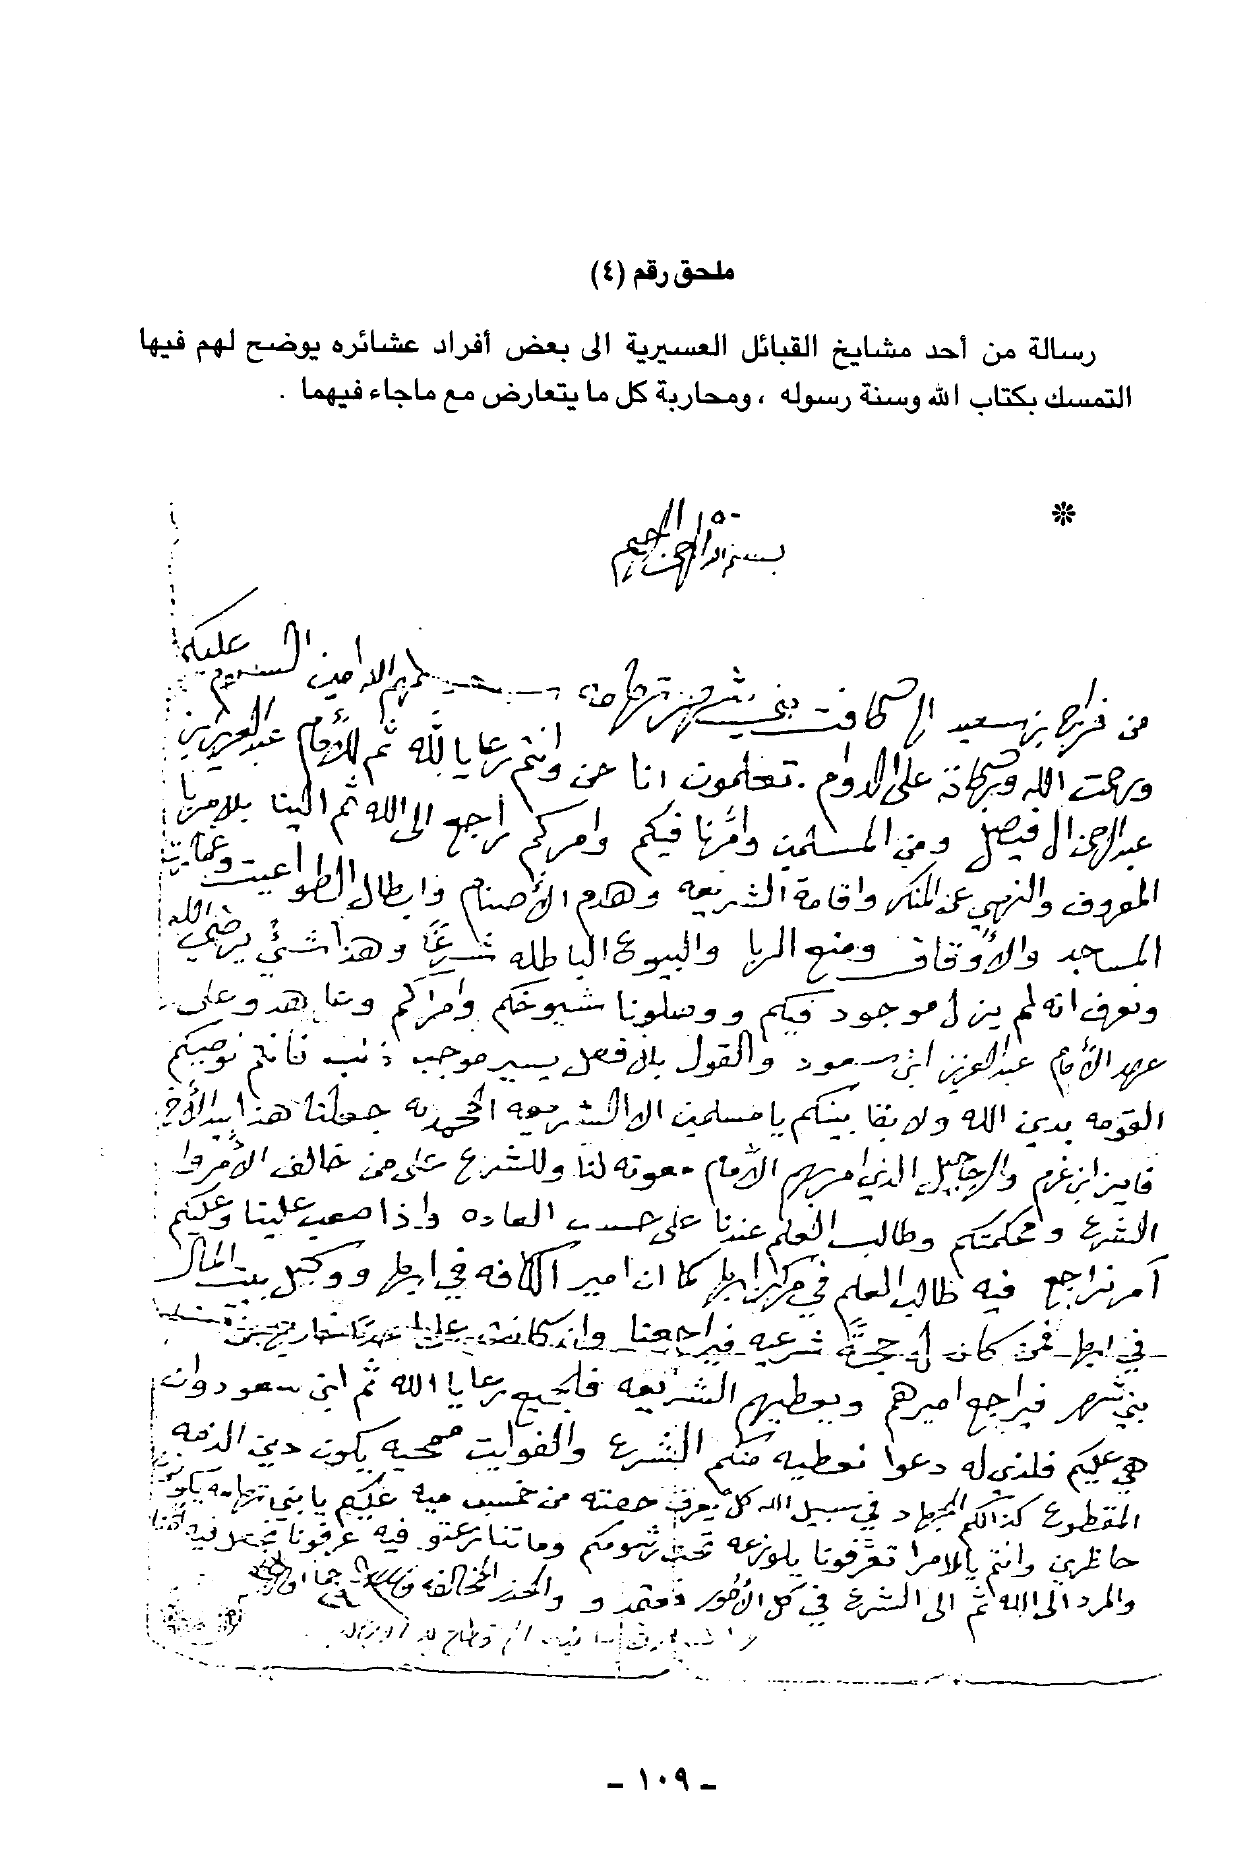 ملحق رقم (٤)
رسالة من أحد مشايخ القبائل العسيرية الى بعض أفراد عشائره يوضح لهم فيها
التمسك بكتاب الله وسنة رسوله ، ومحاربة كل ما يتعارض مع ماجاء فيهما .
*
بسم الله الرحمن الرحيم
من فراج بن سعيد الى كافت بني شهر تهامه سلمهم الله امين السلام عليكم
ورحمت الله وبركاته على الدوام . تعلمون انا حن وانتم رعايا لله ثم للأمام عبدالعزيز بن
عبدالرحمن ال فيصل ومن المسلمين وامرنا فيكم وامركم راجع الى الله ثم الينا بلامر با
المعروف والنهي عن المنكر واقامة الشريعه وهدم الأصنام وابطال الطواغيت وعمارت
المساجد والأوقاف ومنع الربا والبيوع الباطله شرعًا وهذا شئ يرضي الله
ونعرف انه لم يزل موجود فيكم ووصلونا شيوخكم وامراكم وعاهدو على
عهد الأمام عبدالعزيز ابن سعود والقول بلا فعل يسير موجب ذنب فانتم نوصيكم
القومه بدين الله ولا بقا بينكم يا مسلمين الا الشريعه المحمديه جعلنا هذا بيد الأخ
فايز ابن غرم والرجاجيل الذي امر بهم الأمام معونه لنا وللشرع على من خالف الأمر وا
الشرع ومحكمتكم وطالب العلم عندنا على حسب العاده واذا صعب علينا وعليكم
أمر نراجع فيه طالب العلم في مركز ابها كما ان امير الكافه في ابها ووكيل بيت المال
في ابها فمن كان له حجة شرعيه فيراجعنا وان كانت على
بني شهر فيراجع اميرهم ويعطيهم الشريعه فلجميع رعايا الله ثم ابن سعود وان
هي عليكم فلذي له دعوا نعطيه منكم الشرع والفوايت ممحيه يكون دين الذمه
المقطوع كذالكم الجهاد في سبيل الله كل يعرف حصته من خمسميه عليكم يا بني تهامه
حاظرين وانتم يالامرا تعرفونا بلوزعه تحت رسومكم وما تنازعتو فيه عرفونا
والمرد الى الله ثم الى الشرع في كل الأمور فعتمدو والحذر المخالفه
- ١٠٩ -